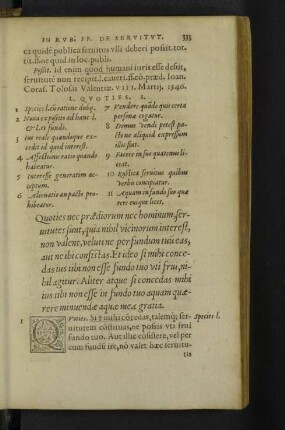 IN RVB. FF. DE SERVITVT. 333
ea quidē publica seruitus vlli deberi possit. tot.
tit. hoc quid in loc. publi.
Possit. id enim quod humani iuris esse desiit,
seruitutē non recipit.
Coras. Tolosæ Valentiæ. VIII. Martij. 1546.
L. QVOTIES. I.
1 Species l. cū ratione dubq.
2 Nunc ex positis ad hanc l.
& Lex fundi.
3 Ius reale quandoque ex-
cedit id quod interest.
4 Affectionis ratio quando
habeatur.
5 Interesse generatim ac-
ceptum.
6 Alienatio an pacto pro-
hibeatur.
7 Vendere quādo quis certa
personæ cogatur.
8 Iremus vendi potest pa-
ctione aliquid expressum
illic siat.
9 Facere in suo quatenus li-
ceat.
10 Rustica seruitus quibus
verbo concipiatur.
11 Aquam in fundo suo quæ-
rere cuique licet.
Quoties nec prædiorum nec hominum ser-
uitutes sunt, quia nihil vicinorum interest,
non valent, veluti ne per fundum tuū eas,
aut ne ibi consistas. Et ideo si mihi conce-
das ius tibi non esse in fundo tuo vti frui, ni-
hil agitur. Aliter atque si concedas mihi
ius tibi non esse in fundo tuo aquam quæ-
rere minuendæ aquæ meæ gratia.
1 Quoties. Si mihi cōcedas, talem ser- Species l.
uitutem cōstituas, ne possis vti frui
fundo tuo. Aut illic cōsistere, vel per
eum fundū ire, nō valet hæc seruitu-
tis